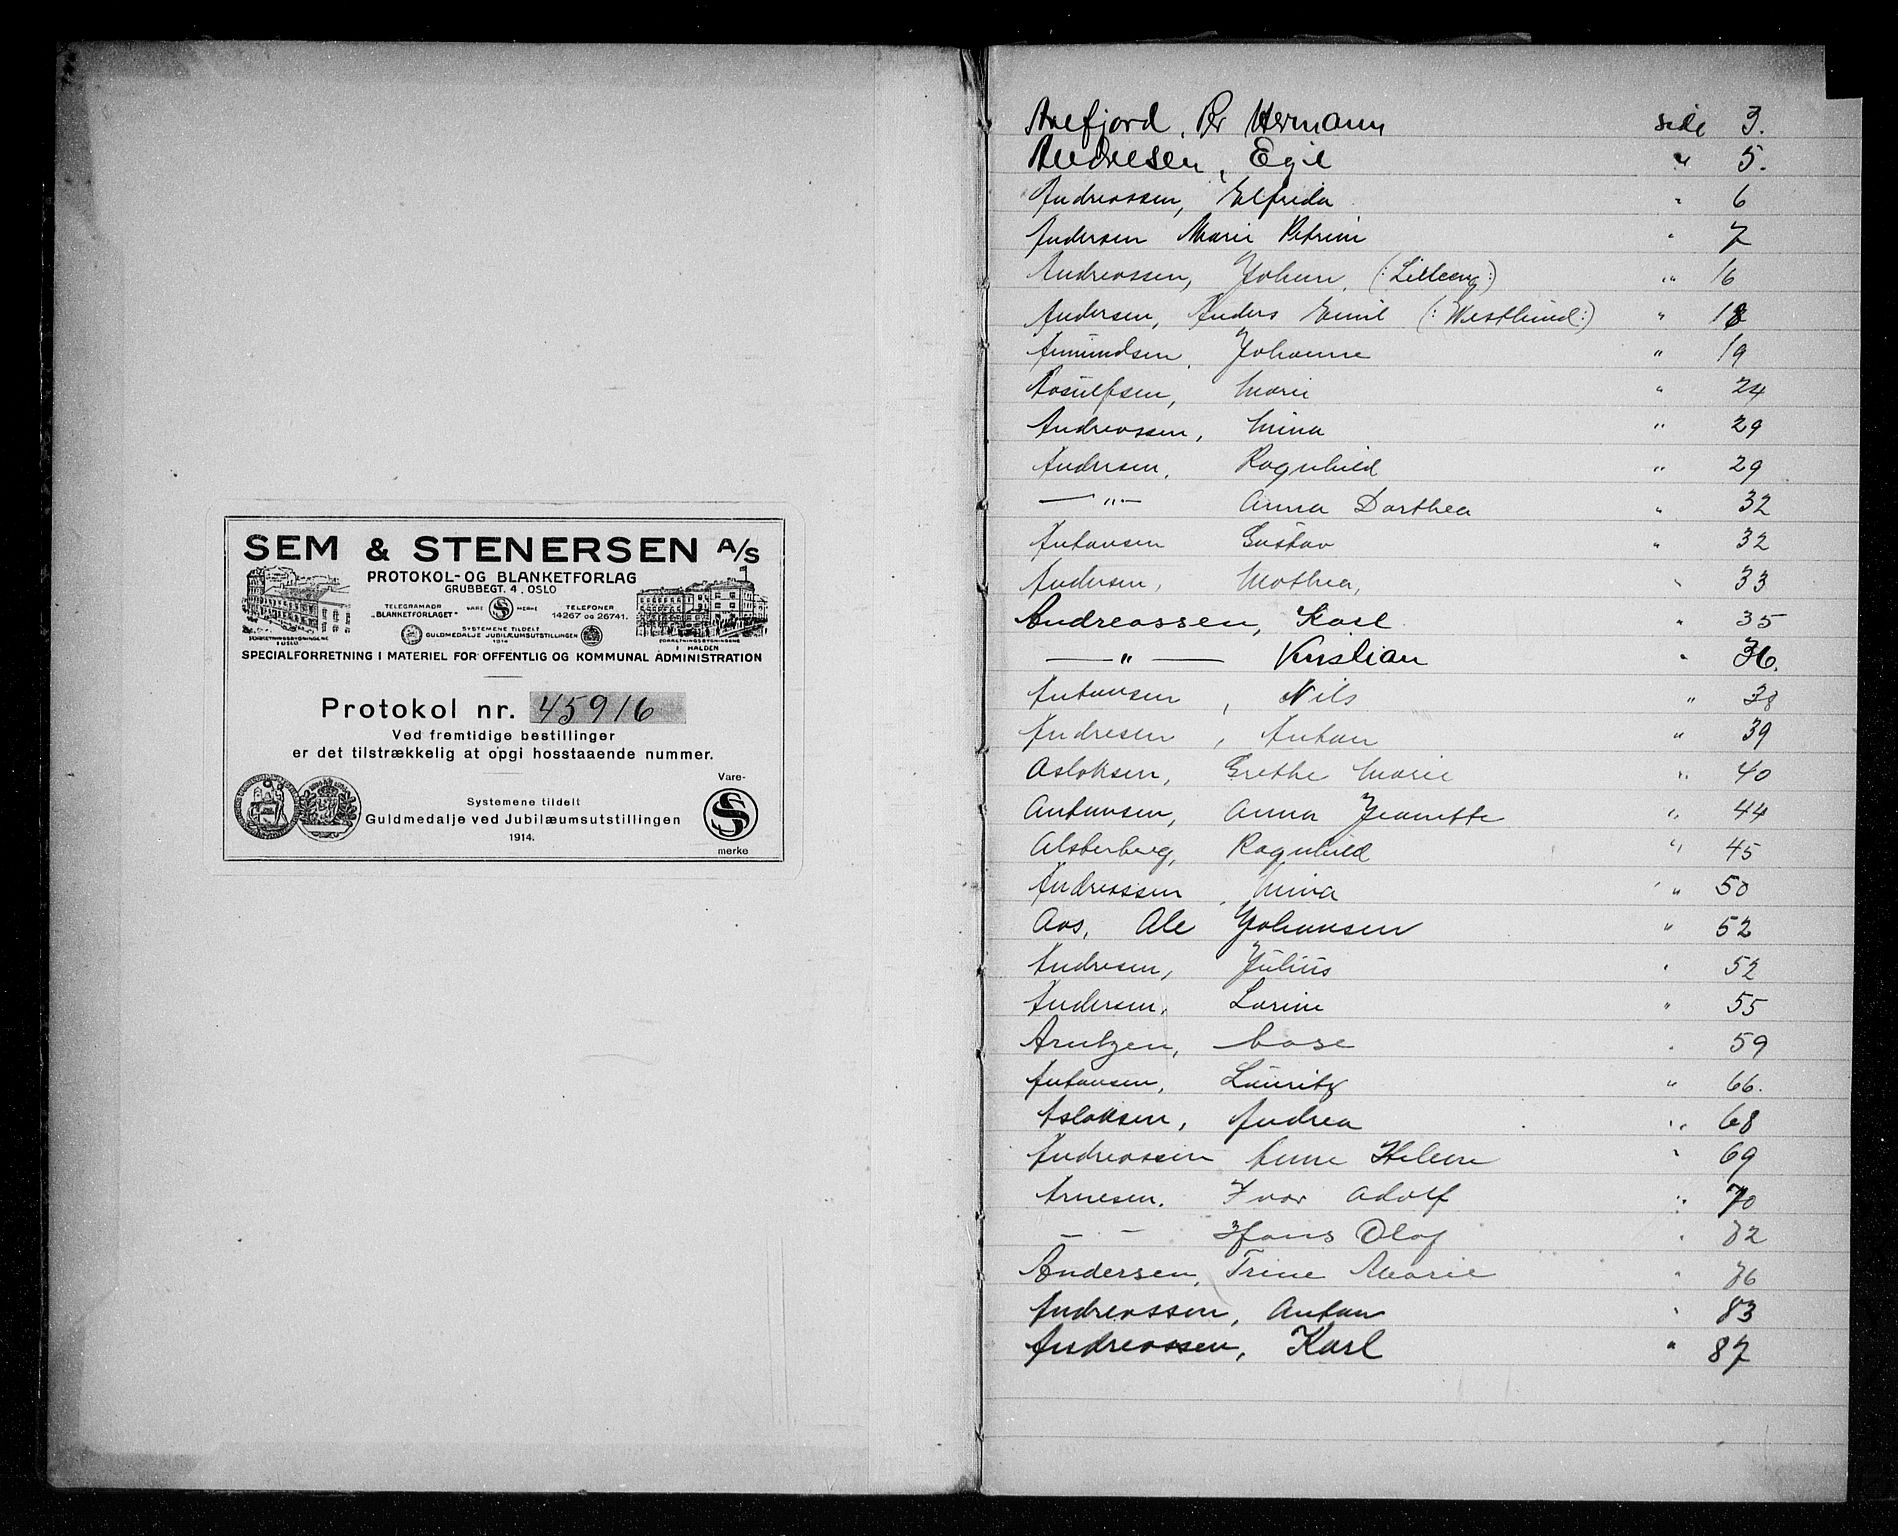 SEM & STENERSEN A/S
PROTOKOL- OG BLANKETFORLAG
GRUBBEGT. 4. OSLO
TELEGRAMADR VARE SS MERKE TELEFONER
„BLANKETFORLAGET" 14267 OG 26741.
SYSTEMENE TILDELT
GULDMEDALJE JUBILÆUMSUTSTILLINGEN
1914
FORRETNINGSBYGNINGENE I OSLO
FORRETNINGSBYGNINGENE I HALDEN
SPECIALFORRETNING I MATERIEL FOR OFFENTLIG OG KOMMUNAL ADMINISTRATION
Protokol nr. 45916
Ved fremtidige bestillinger
er det tilstrækkelig at opgi hosstaaende nummer.
Vare-
Systemene tildelt
Guldmedalje ved Jubilæumsutstillingen
1914.
SS
merke
Arefjord, Per Hermann side 3.
Andresen, Egil " 5.
Andreassen, Elfrida " 6
Andersen Marie Petrine " 7
Andreassen, Johan, (: Lilleeng :) " 16
Andersen, Anders Emil (: Westlund :) " 18
Amundsen, Johanne " 19
Aasulfsen, Marie " 24
Andreassen, Mina " 29
Andersen, Ragnhild " 29
— " — Anna Dorthea " 32
Antonsen Gustav " 32
Andersen, Mathea, " 33
Andreassen, Karl " 35
— " — Kristian " 36.
Antonsen, Nils " 38
Andresen, Anton " 39
Aslaksen, Grethe Marie " 40
Antonsen, Anna Jeanette " 44
Alsterberg, Ragnhild " 45
Andreassen, Mina " 50
Aas, Ole Johansen " 52
Andresen, Julius " 52
Andersen, Larine " 55
Arntzen, Aase " 59
Antonsen, Lauritz " 66.
Aslaksen, Andrea " 68
Andreassen Anne Helene " 69
Arnesen, Ivar Adolf " 70
— — Hans Olaf " 82
Andersen, Trine Marie " 76
Andreassen, Anton " 83
Andreassen, Karl " 87